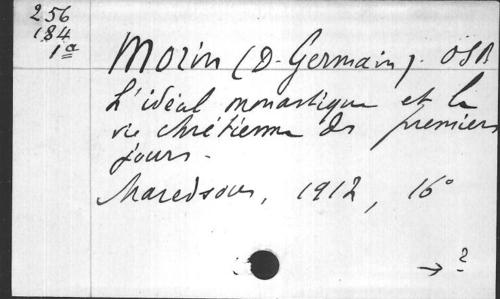 256
184
1a
Morin (D. Germain). OSB
L'idéal monastique et la
vie chrétienne des premiers
jours.
Maredsous, 1912, 16°
→ ?